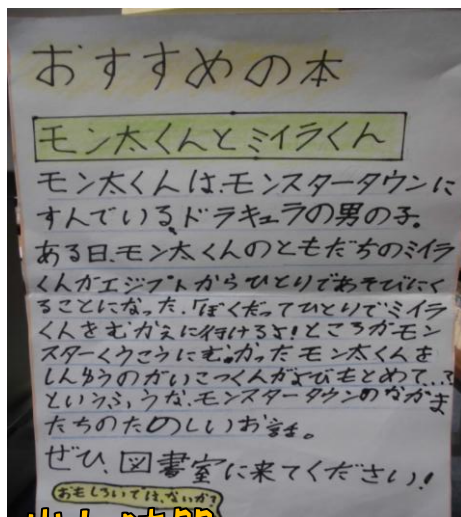 おすすめの本
モン太くんとミイラくん
モン太くんは、モンスタータウンに
すんでいる、ドラキュラの男の子。
ある日、モン太くんのともだちのミイラ
くんがエジプトからひとりであそびにく
ることになった、「ぼくだってひとりでミイラ
くんをむかえに行けるよ!ところがモン
スターくうこうにむかったモン太くんを
しんゆうのがいこつくんがよびもとめて…?
というふうな、モンスタータウンのなかま
たちのたのしいお話。
ぜひ、図書室に来てください!
おもしろいではないか?